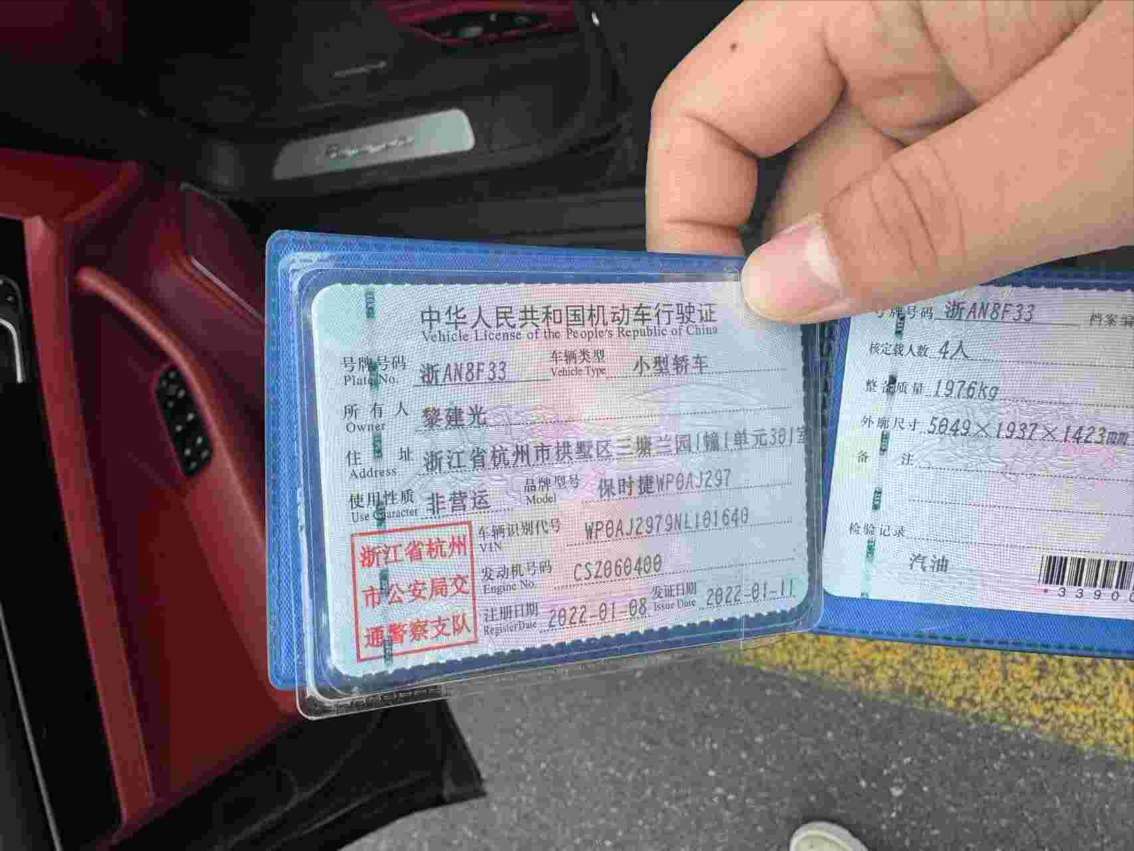 中华人民共和国机动车行驶证
Vehicle License of the People's Republic of China
号牌号码 浙AN8F33 车辆类型 小型轿车
Plate No. Vehicle Type
所有人 黎建光
Owner
住址 浙江省杭州市拱墅区三塘兰园1幢1单元301室
Address
使用性质 非营运 品牌型号 保时捷WP0AJ297
Use Character Model
车辆识别代号 WP0AJ2979NL101640
VIN
发动机号码 CSZ060400
Engine No.
注册日期 2022-01-08 发证日期 2022-01-11
Register Date Issue Date
浙江省杭州
市公安局交
通警察支队
号牌号码 浙AN8F33 档案编
核定载人数 4人
整备质量 1976kg
外廓尺寸 5049×1937×1423mm
备注
检验记录
汽油
*33900